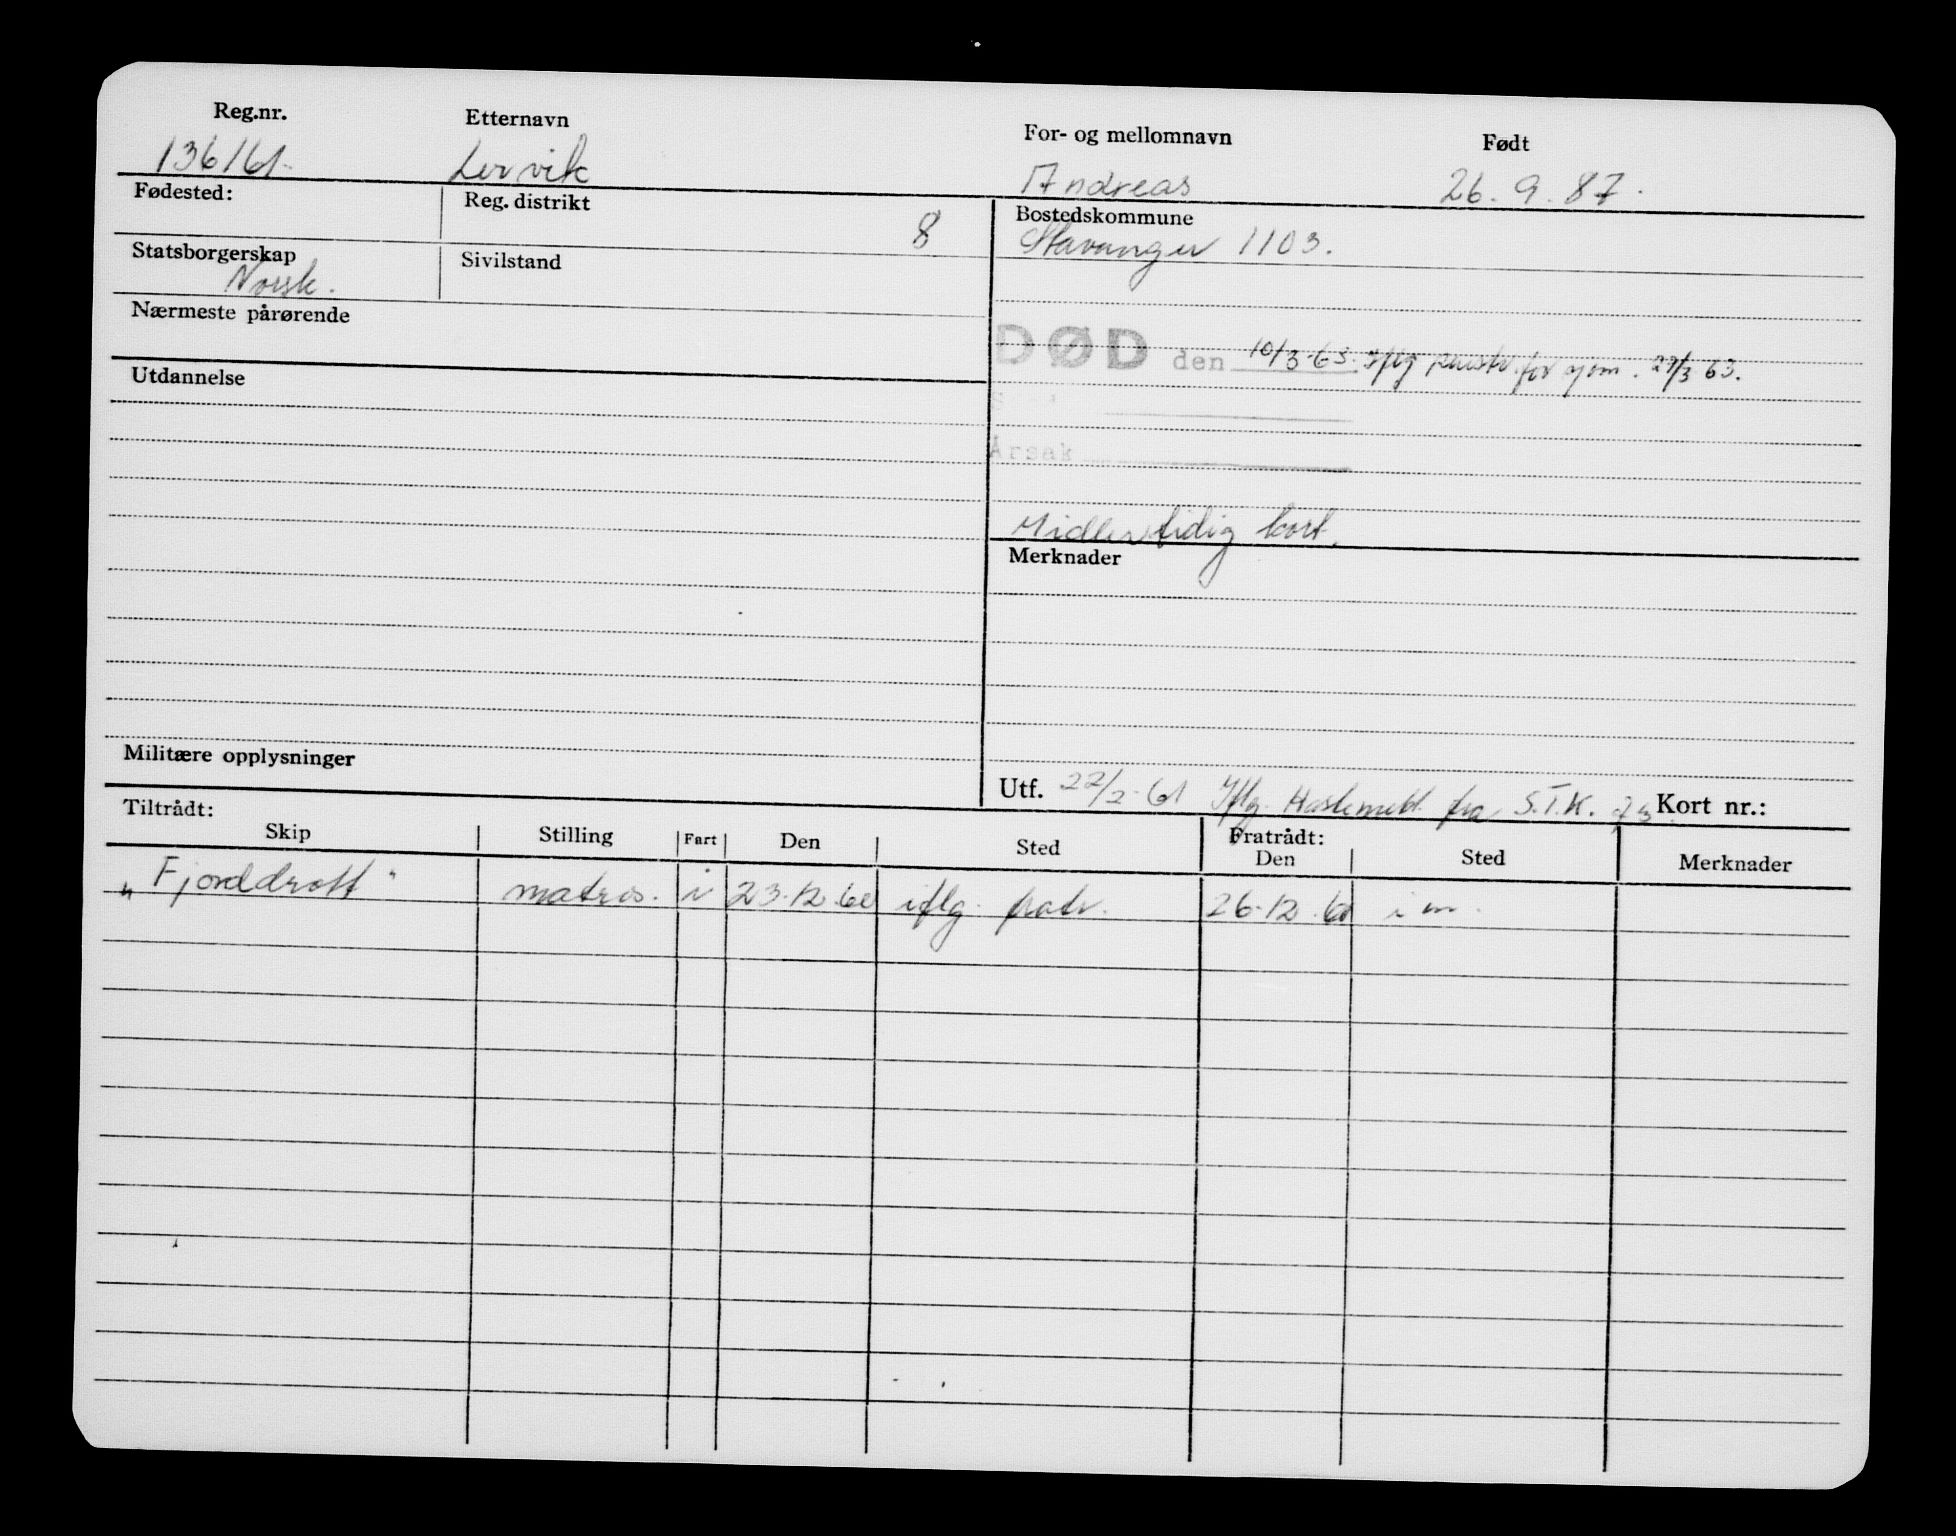 Reg.nr. Etternavn For- og mellomnavn Født
136161. Lervik Andreas 26.9.87.
Fødested: Reg. distrikt 8 Bostedskommune
Stavanger 1103.
Statsborgerskap Sivilstand
Norsk.
Nærmeste pårørende
DØD den 10/3-63. Iflg for sjøm. 29/3 63.
Utdannelse
Årsak
Midlertidig kort.
Merknader
Militære opplysninger
Utf. 22/2-61 Iflg. fra S.T.K. Kort nr.:
Tiltrådt: Fratrådt:
Skip Stilling Fart Den Sted Den Sted Merknader
"Fjorddrott" matros. i 23.12.60 iflg. fratr. 26.12.60 i m.